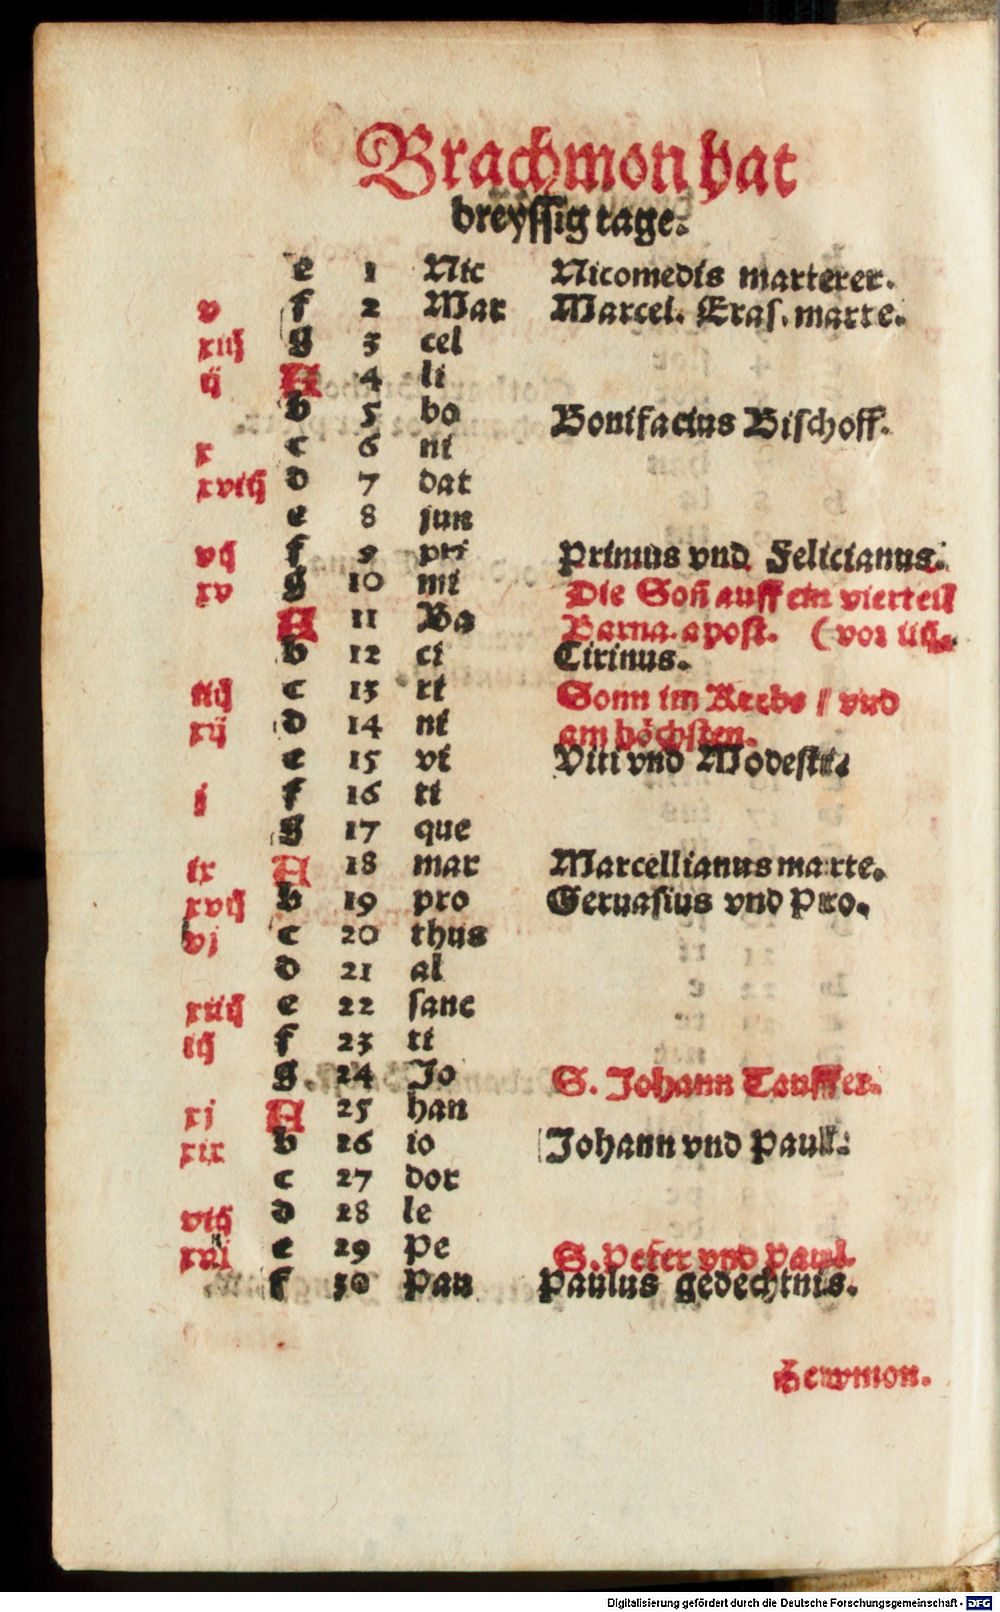 Brachmon hat
dreyssig tage.
e 1 Nic Nicomedis marterer.
v f 2 Mar Marcel. Eras. marte.
xiij g 3 cel
ij A 4 li
b 5 bo Bonifacius Bischoff.
x c 6 ni
xviij d 7 dat
e 8 jun
vij f 9 pri Primus vnd Felicianus.
xv g 10 mi Die Soñ auff ein vierteil
A 11 Ba Barna. apost. (vor iiij.
b 12 ci Cirinus.
iiij c 13 ri Sonn im Krebs // vnd
xij d 14 ni am höchsten.
e 15 vi Viti vnd Modesti.
j f 16 ti
g 17 que
ix A 18 mar Marcellianus marte.
xvij b 19 pro Geruasius vnd Pro.
vj c 20 thus
d 21 al
xiiij e 22 sanc
iij f 23 ti
g 24 Jo S. Johann Tauffer.
xj A 25 han
xix b 26 io Johann vnd Paul.
c 27 dor
viij d 28 le
xvi e 29 Pe S. Peter vnd Paul.
f 30 Pau Paulus gedechtnis.
Hewmon.
Digitalisierung gefördert durch die Deutsche Forschungsgemeinschaft - DFG